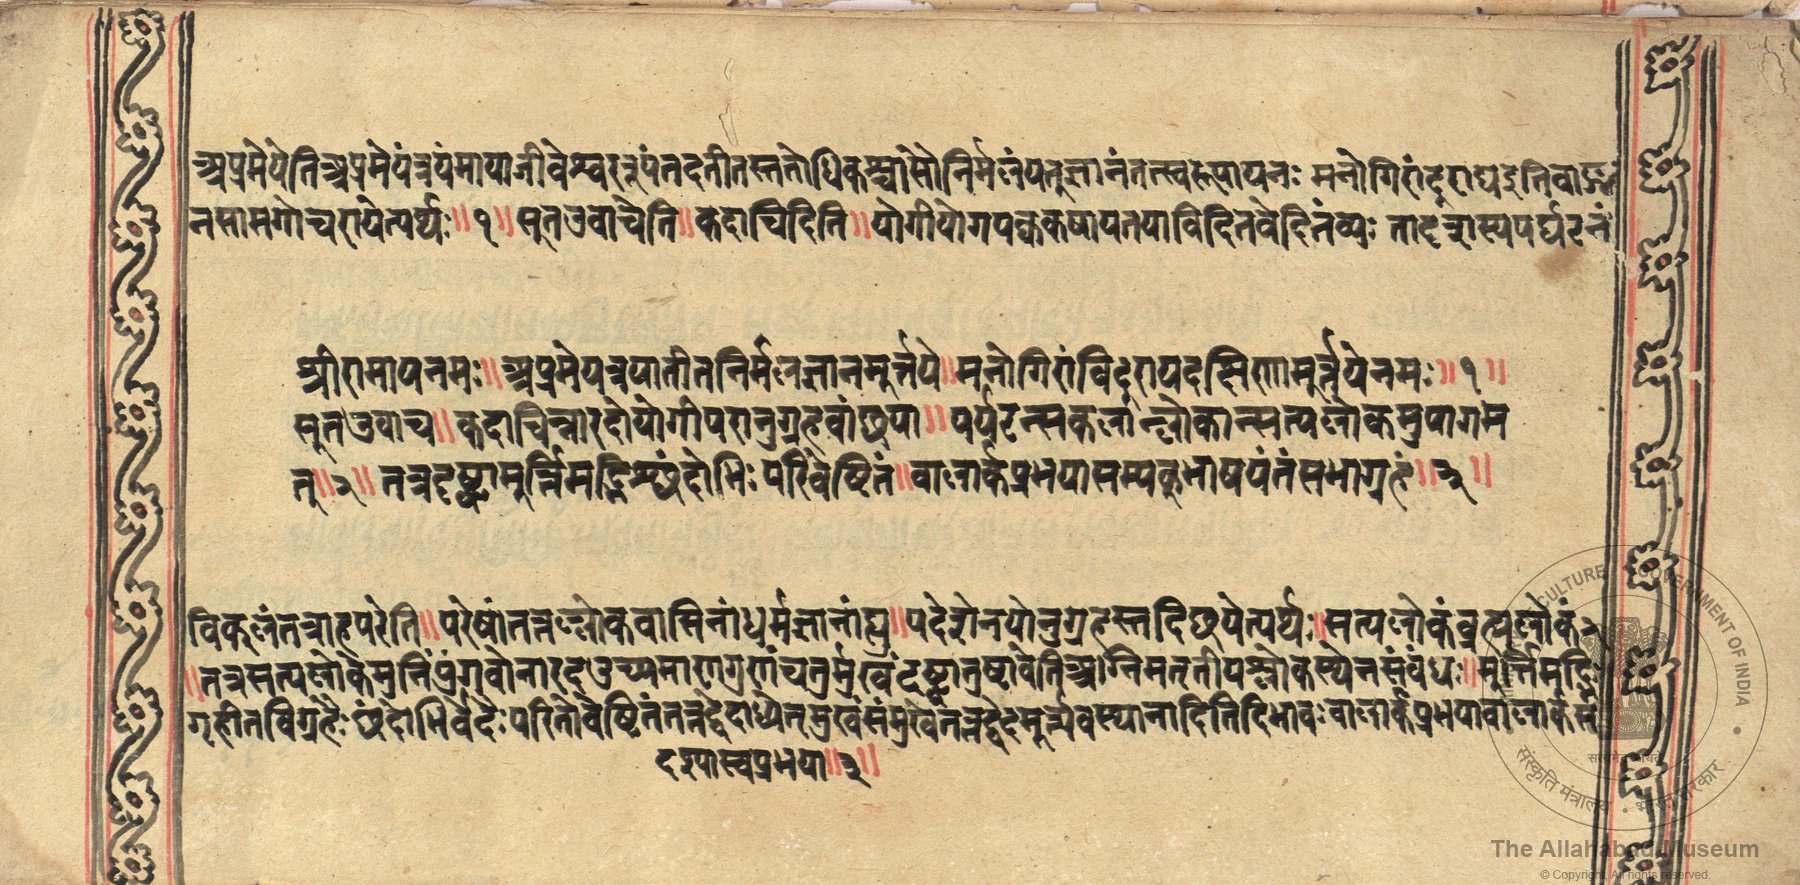 अप्रमेयेति अप्रमेयं त्रयं मायाजीवेश्वररूपं तदतीतस्ततोधिकश्चासौ निर्मलं यत् ज्ञानं तत्स्वरूपायेनः मनोगिरां दूराय इति वाङ्म
नसामगोचरायेत्यर्थः ॥ १ ॥ सूत उवाचेति ॥ कदाचिदिति ॥ योगी योगपक्वकषायतया विदितवेदितव्यः तादृशस्यपर्यटनं
श्रीरामायनमः ॥ अप्रमेयत्रयातीतनिर्मलज्ञानमूर्त्तये ॥ मनोगिरां विदूराय दक्षिणामूर्त्तयेनमः ॥ १ ॥
सूत उवाच ॥ कदाचिन्नारदो योगी परानुग्रहवांछया ॥ पर्यटन्सकलान्लोकान्सत्यलोकमुपागम
त् ॥ २ ॥ तत्र दृष्ट्वा मूर्त्तिमद्भिश्छंदोभिः परिवेष्टितं ॥ बालार्कप्रभया सम्यक् भासयंतं सभागृहं ॥ ३ ॥
विफलं तत्राह परेति ॥ परेषां तत्तल्लोकवासिनां धर्मज्ञानां द्यु ॥ पदेशेन योनुग्रहस्तदिछयेत्यर्थः ॥ सत्यलोकं ब्रह्मलोकं २
॥ तत्र सत्यलोके मुनिपुंगवो नारद उच्यमाणगुणं चतुर्मुखं दृष्ट्वा तुष्टावेति अग्निमतृतीयश्लोकस्थेन संबंधः ॥ मूर्त्तिमद्भिः
गृहीतविग्रहैः छंदोभिर्वेदैः परितो वेष्टितं तत्तद्वेदाध्येतृमुखं संमुखे तत्तद्वेदमूर्त्यवस्थानादिति भावः बालार्कप्रभया बालार्कस
दृश्यास्वप्रभया ॥ ३ ॥
The Allahabad Museum
© Copyright. All rights reserved.
CULTURE GOVERNMENT OF INDIA
संस्कृति मंत्रालय भारत सरकार